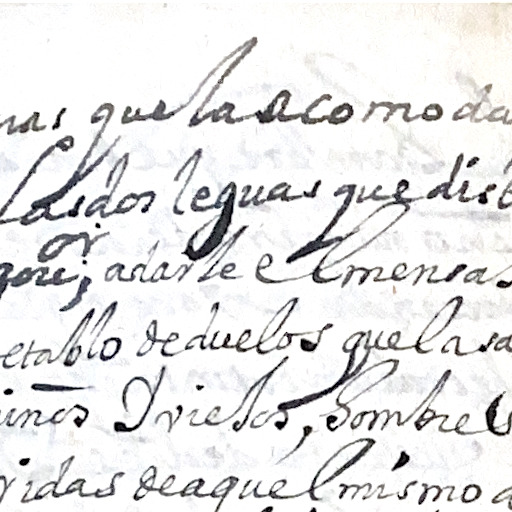 nas que la acomoda
las dos leguas que dist
or
gori; adarle el mensas
etablo de duelos que la sa
inos Y viejos, hombres
vidas de aquel mismo a